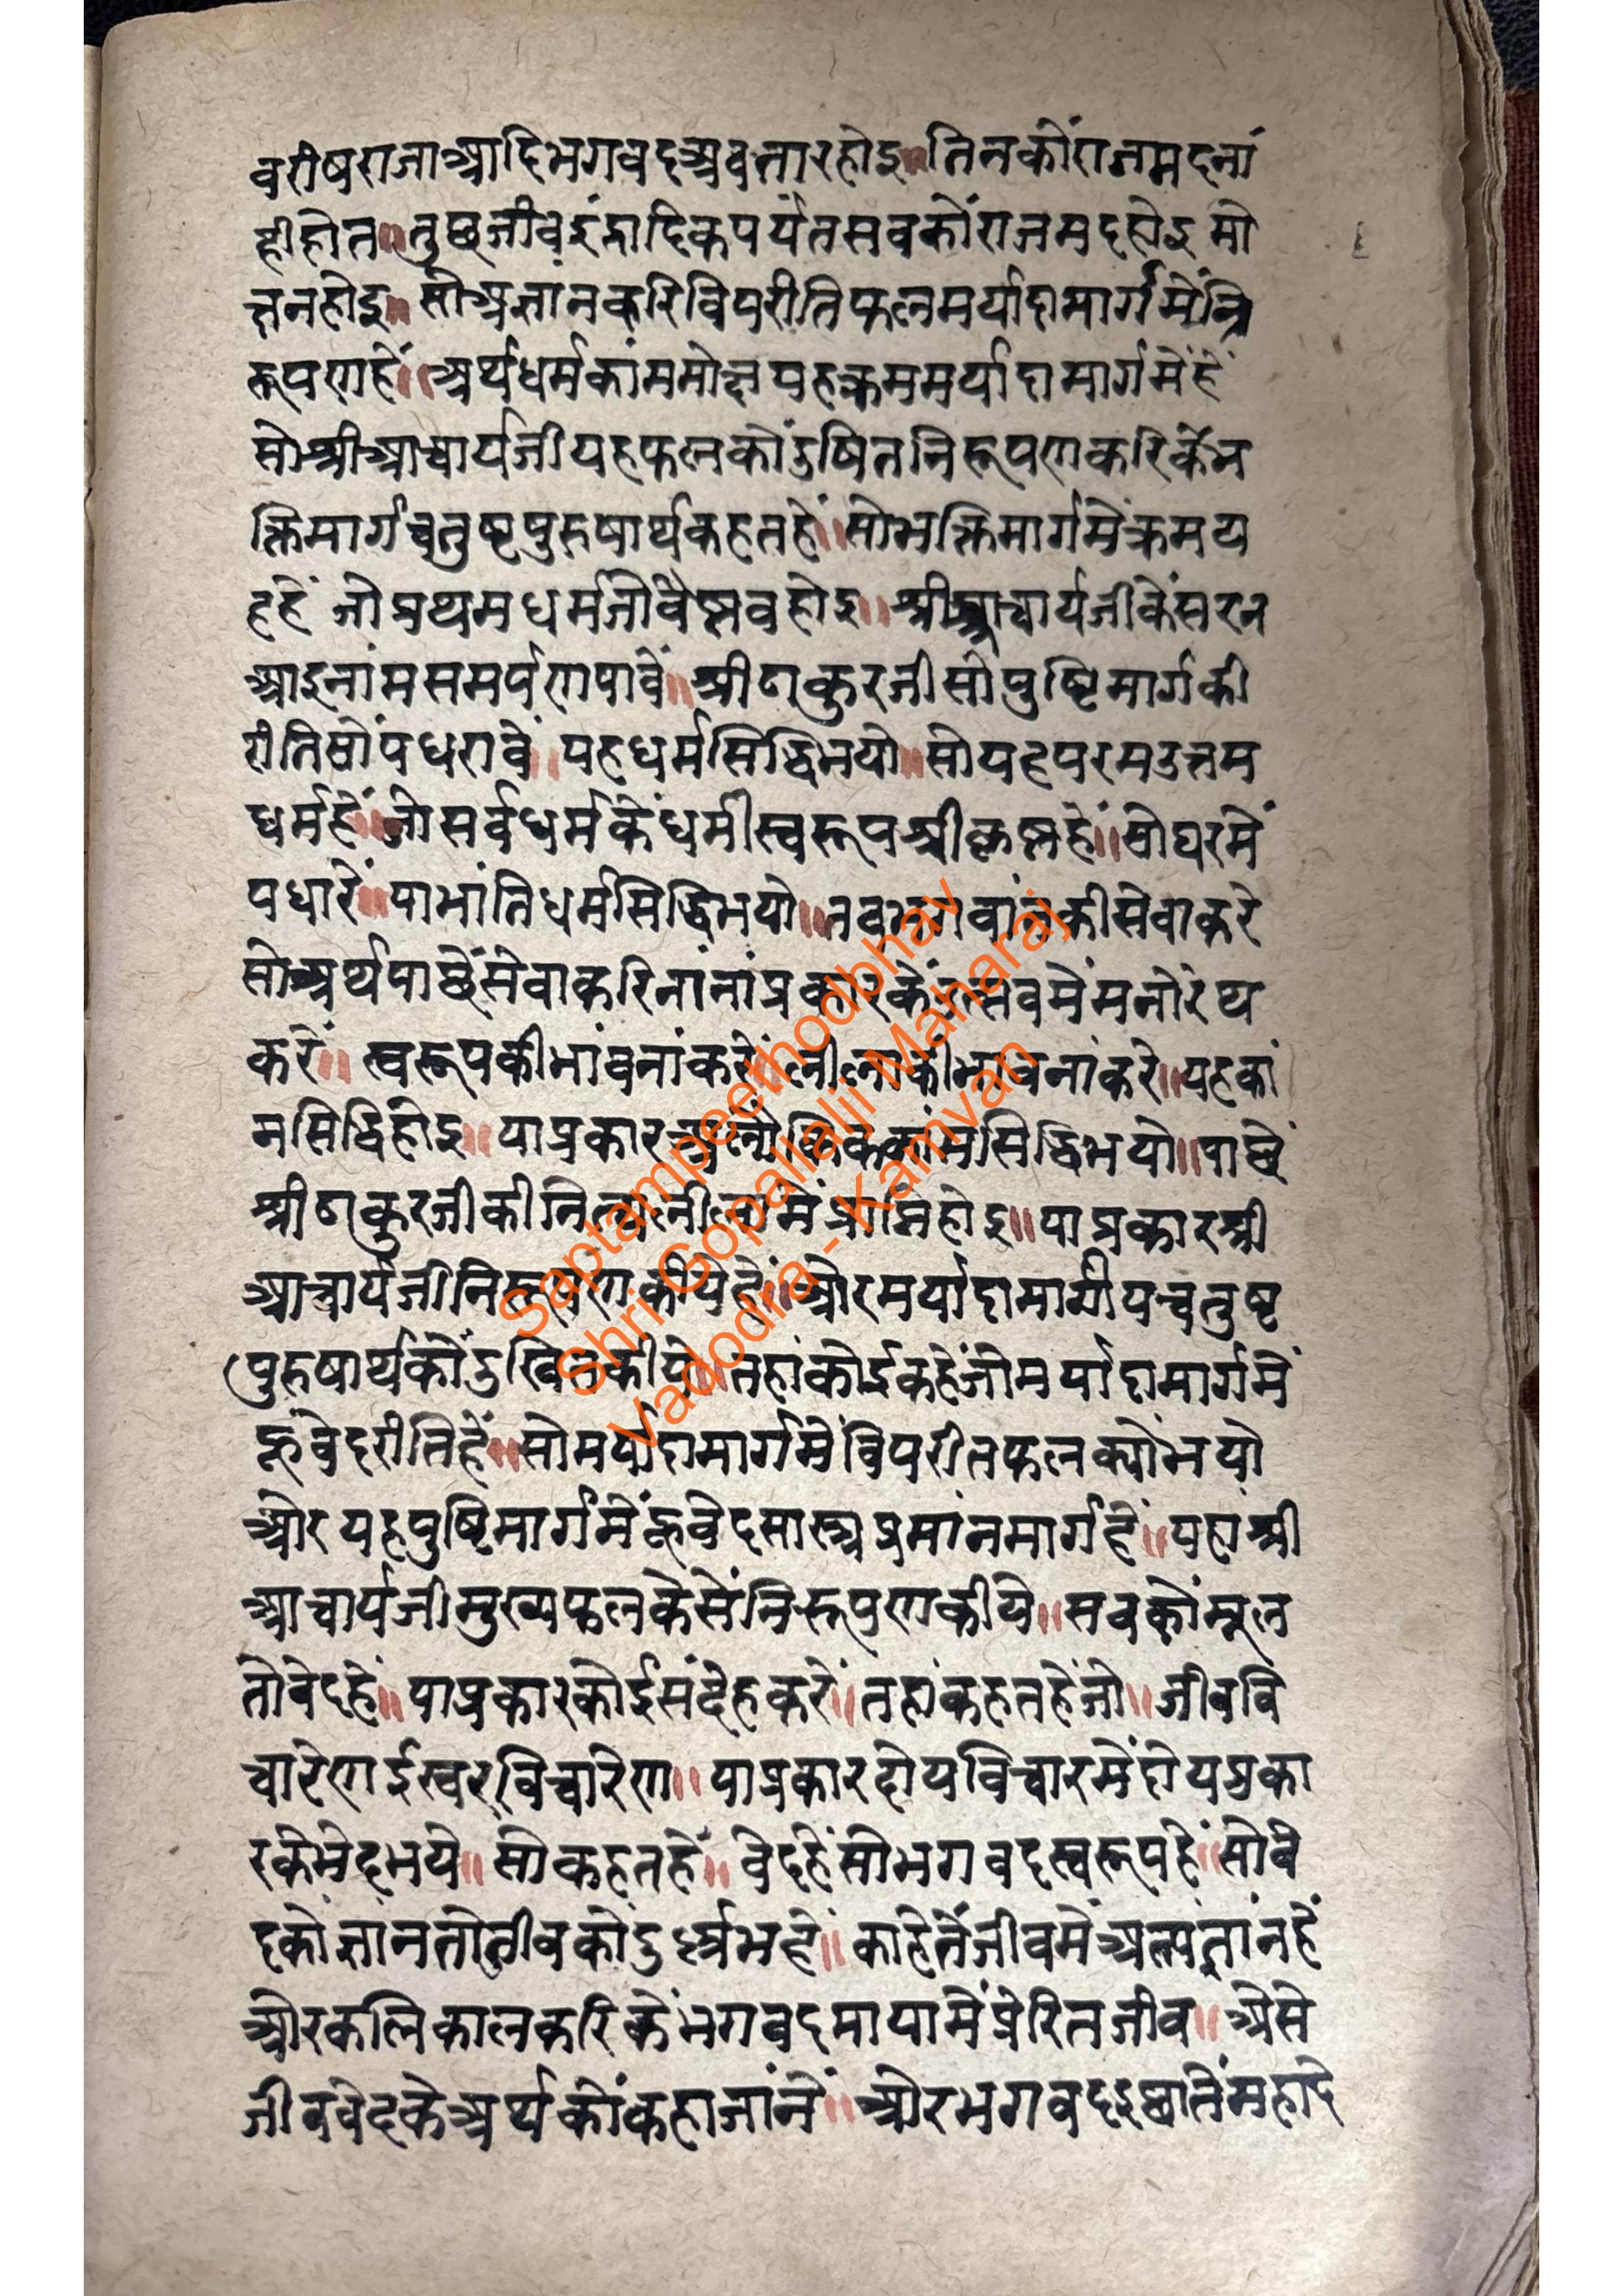 वरीषराजाआदिभगवदअवतारहोइ॥तिनकोंराजमदनां
हीहोत॥तुछजीवइंद्रादिकपर्यंतसबकोंराजमदहोइमो
क्षनहोइ॥सोअज्ञानकरिविपरीतिफलमर्यादामार्गमेंनि
रूपणहें॥अर्थधर्मकांममोक्षयहक्रममर्यादामार्गमेंहें
सोश्रीआचार्यजीयहफलकोंदुषितनिरूपणकरिकेंभ
क्तिमार्गचतुष्टपुरुषार्थकहतहें॥सोभक्तिमार्गमेंक्रमय
हहें जोप्रथमधर्मजोवैष्णवहोइ॥श्रीआचार्यजीकेंसरन
आइनांमसमर्पणपावें॥श्रीठाकुरजीसोंपुष्टिमार्गकी
रीतिसोंपधरावें॥यहधर्मसिद्धिभयो॥सोयहपरमउत्तम
धर्महें॥जोसर्वधर्मकेंधर्मीस्वरूपश्रीकृष्णहें॥सोघरमें
पधारें॥याभांतिधर्मसिद्धिभयो॥तबभगवांनकीसेवाकरे
सोअर्थपाछेंसेवाकरिनांनांप्रकारकेंउत्सवमेंमनोरथ
करें॥स्वरूपकीभांवनांकरें॥लीलाकीभावनांकरे॥यहकां
मसिद्धिहोइ॥याप्रकारअलौकिककांमसिद्धिभयो॥पाछें
श्रीठाकुरजीकीनित्यलीलामेंप्राप्तिहोइ॥याप्रकारश्री
आचार्यजीनिरूपणकीयेहें॥ओरमर्यादामार्गीयचतुष्ट
पुरुषार्थकोंदुखितकीये॥तहांकोईकहेंजोमर्यादामार्गमें
हूवेदरीतिहें॥सोमर्यादामार्गमेंविपरीतफलक्योंभयो
ओरयहपुष्टिमार्गमेंहूवेदसास्त्रप्रमांनमार्गहें॥यहांश्री
आचार्यजीमुख्यफलकेसेंनिरूपणकीये॥सबकोंमूल
तोवेदहें॥याप्रकारकोईसंदेहकरें॥तहांकहतहेंजो॥जीववि
चारेणईस्वरविचारेण॥याप्रकारदोयविचारमेंदोयप्रका
रकेभेदभये॥सोकहतहें॥वेदहेंसोभगवदस्वरूपहें॥सोवे
दकोंज्ञानतोजीवकोंदुर्ल्लभहें॥काहेतेंजीवमेंअल्पज्ञांनहें
ओरकलिकालकरिकेंभगवदमायामेंप्रेरितजीव॥असे
जीववेदकेअर्थकोंकहाजांनें॥ओरभगवदइछातेंमहादे
Saptampeethodbhav
Shri Gopallalji Maharaj
Vadodra - Kamvan